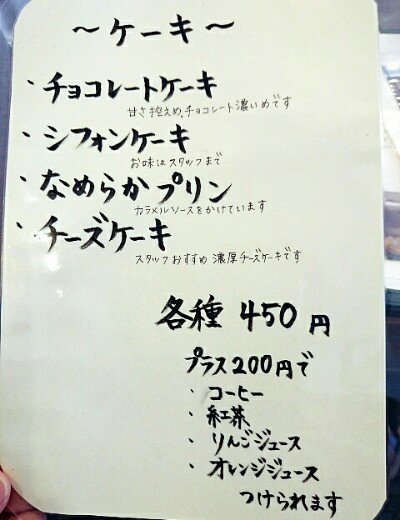 ～ケーキ～
・チョコレートケーキ
甘さ控えめ、チョコレート濃いめです
・シフォンケーキ
お味はスタッフまで
・なめらかプリン
カラメルソースをかけています
・チーズケーキ
スタッフおすすめ 濃厚チーズケーキです
各種 450円
プラス200円で
・コーヒー
・紅茶
・りんごジュース
・オレンジジュース
つけられます